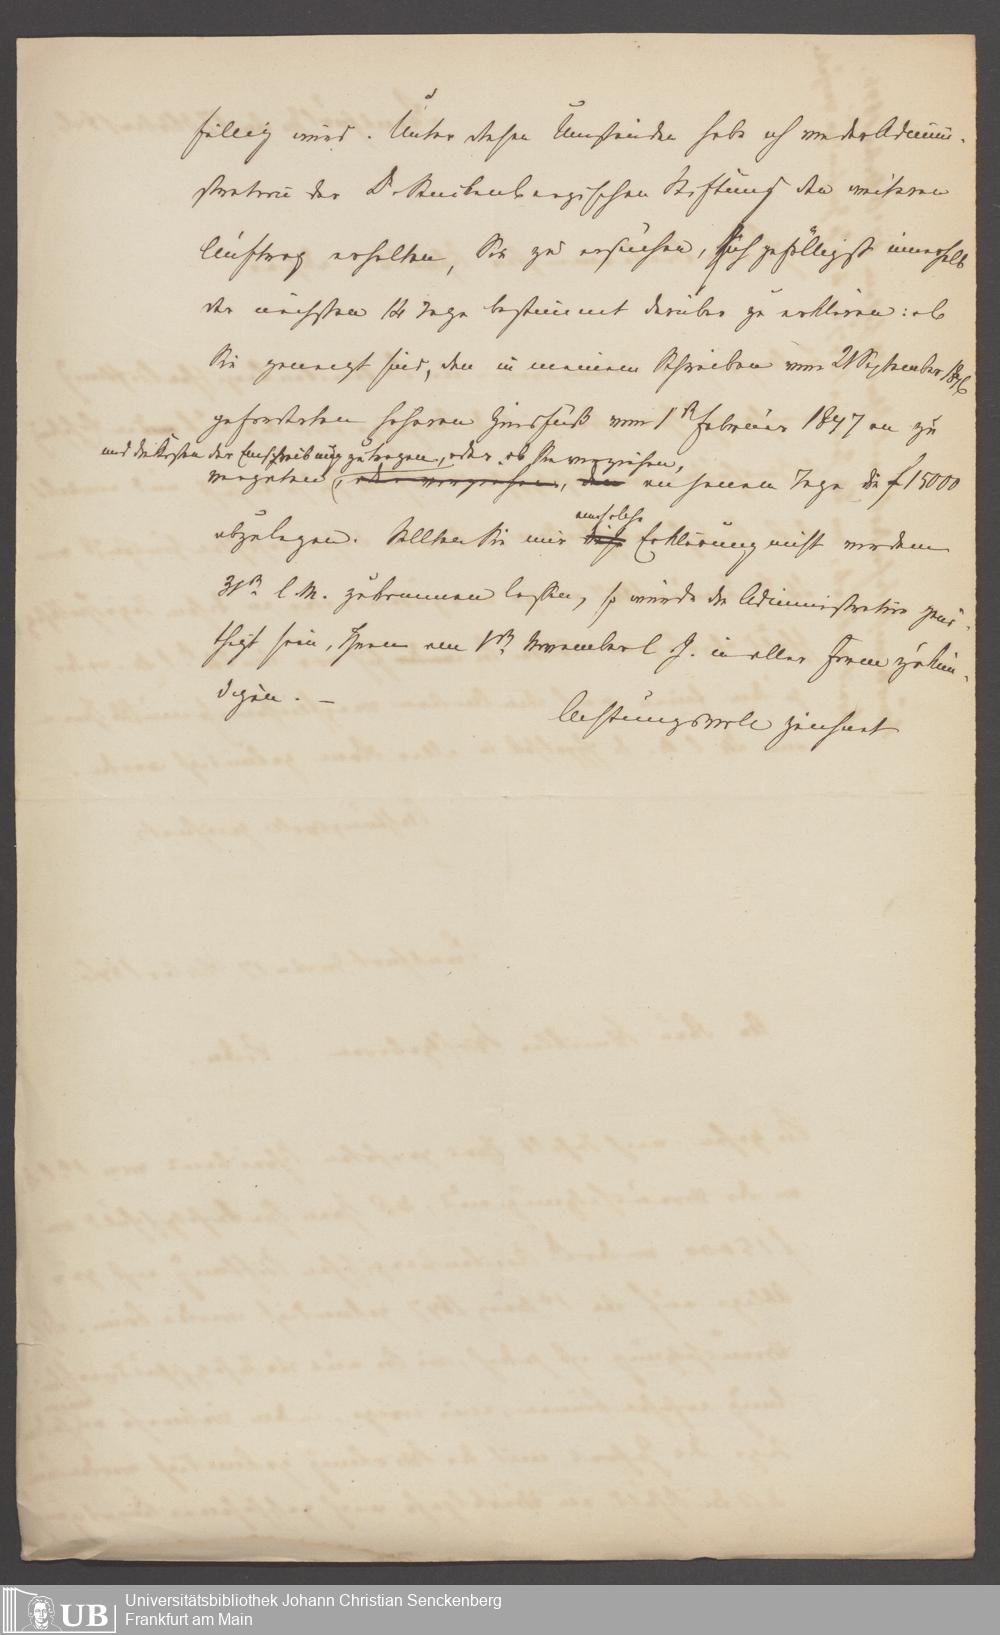 fällig wird. Unter diesen Umständen habe ich von der Admini-
stration der Dr. Senckenbergischen Stiftung den weiteren
Auftrag erhalten, Sie zu ersuchen, sich gefälligst innerhalb
der nächsten 14 Tage bestimmt darüber zu erklären: ob
Sie geneigt sind, den in meinem Schreiben vom 21 September 1846
geforderten höheren Zinsfuß vom 1n Februar 1847 an zu
und die Kosten der Einschreibung zu tragen, oder ob Sie vorziehen,
vergüten, oder vorziehen, den an jenem Tage die f 15000
abzulegen. Sollten Sie mir eine solche
diese Erklärung nicht vor dem
31n l. M. zukommen lassen, so würde die Administration genö-
thigt sein, Ihnen am 1n November l. J. in aller Form zu kün-
digen. —
Achtungsvoll zeichnet
Universitätsbibliothek Johann Christian Senckenberg
Frankfurt am Main
UB